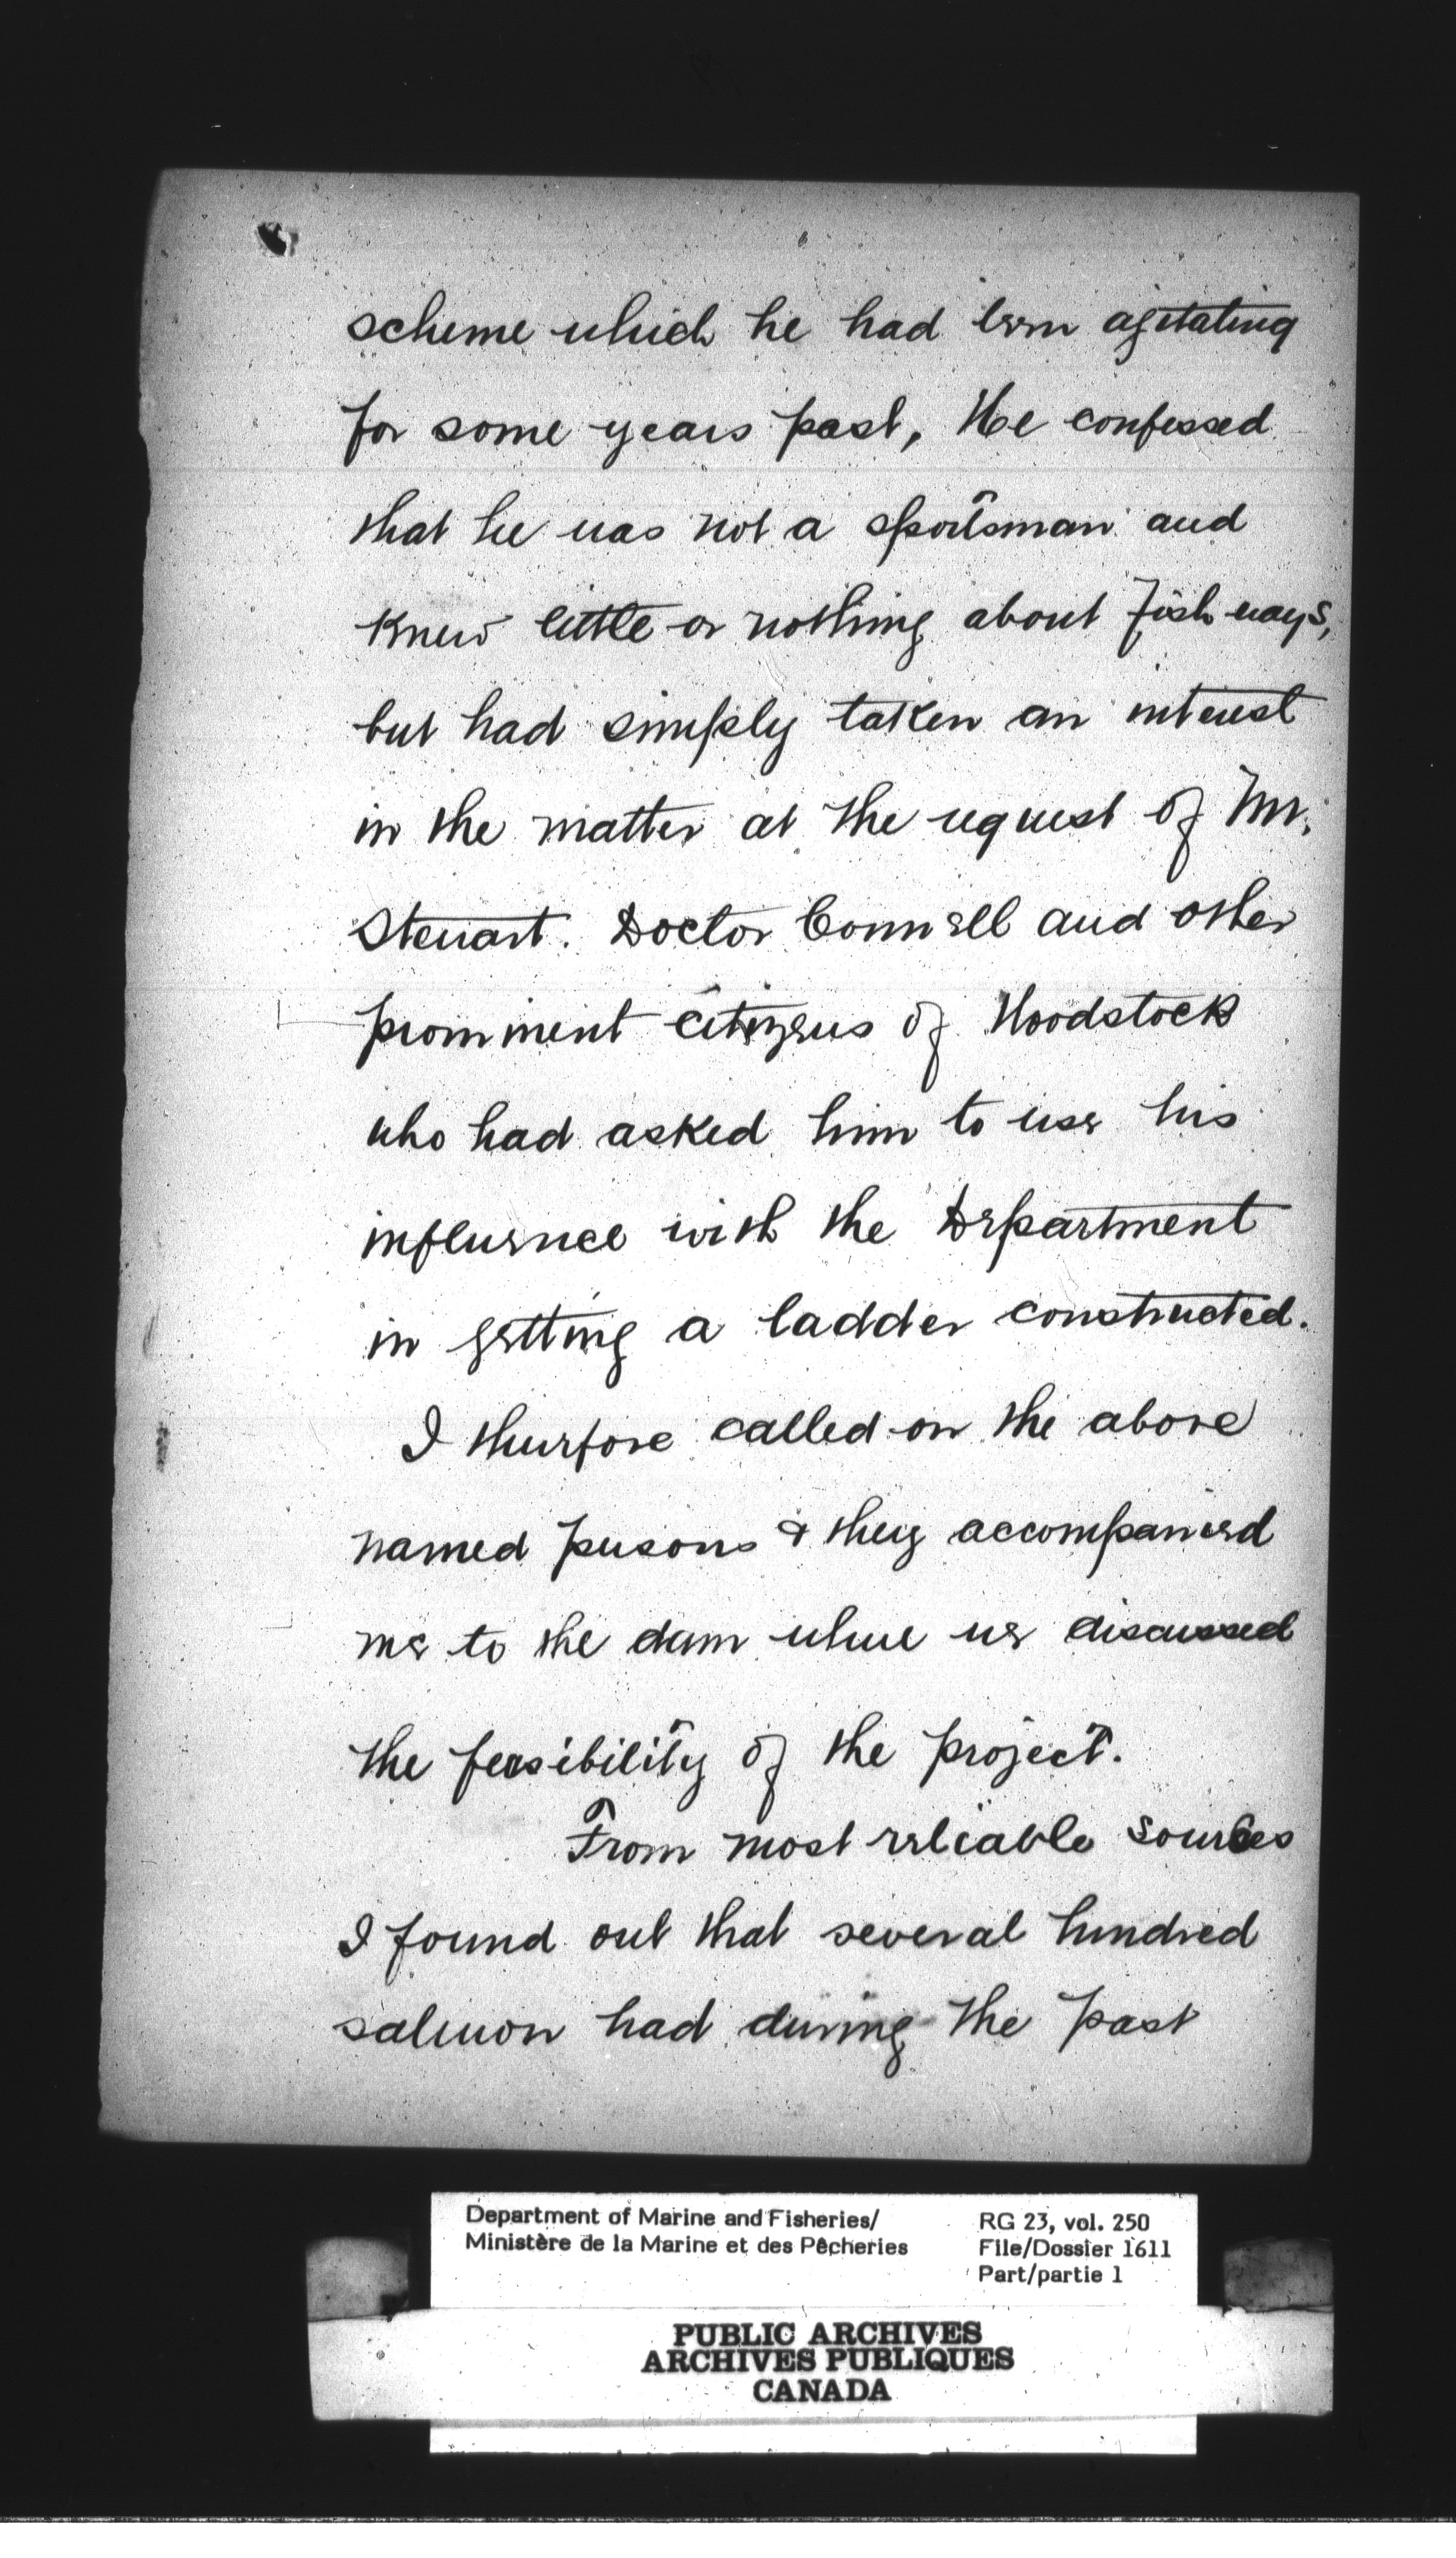 scheme which he had been agitating
for some years past, He confessed
that he was not a sportsman and
knew little or nothing about Fish ways,
but had simply taken an interest
in the matter at the request of Mr.
Stewart. Doctor Connell and other
prominent citizens of Woodstock
who had asked him to use his
influence with the Department
in getting a ladder constructed.
I therefore called on the above
named persons & they accompanied
me to the dam where we discussed
the feasibility of the project.
From most reliable sources
I found out that several hundred
salmon had during the past
Department of Marine and Fisheries/
Ministère de la Marine et des Pêcheries
RG 23, vol. 250
File/Dossier 1611
Part/partie 1
PUBLIC ARCHIVES
ARCHIVES PUBLIQUES
CANADA